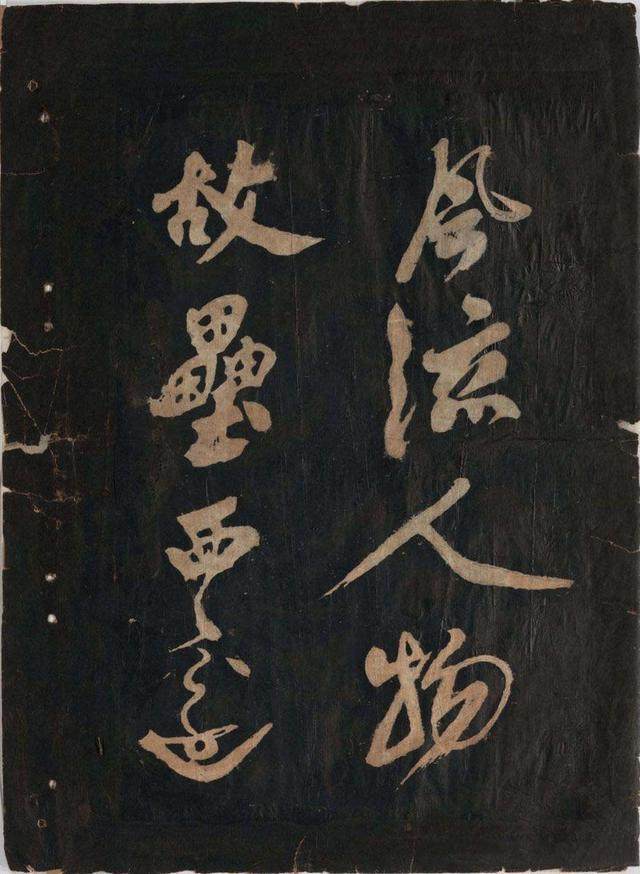 風流人物
故壘西邊